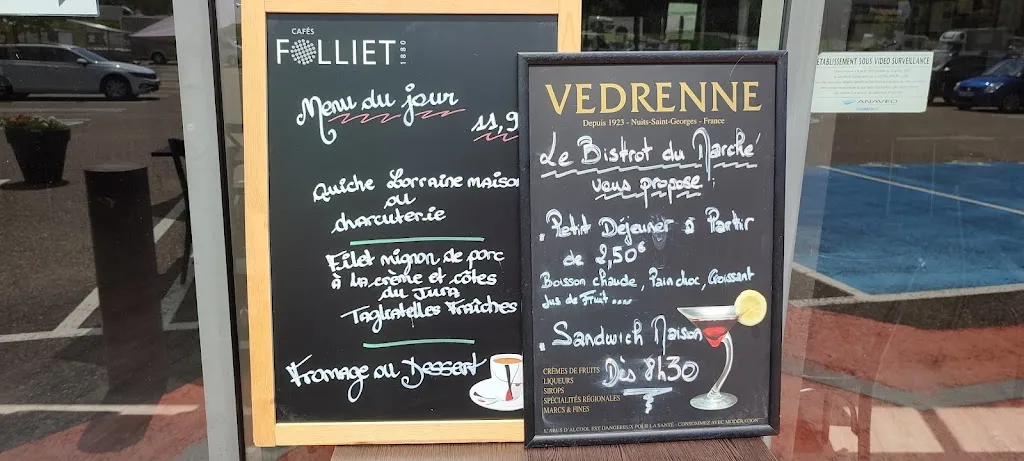 CAFÉS
FOLLIET
1880
Menu du jour
11,9
Quiche Lorraine maison
ou
charcuterie
Filet mignon de porc
à la crème et côtes
du Jura
Tagliatelles Fraîches
Fromage ou Dessert
VEDRENNE
Depuis 1923 - Nuits-Saint-Georges - France
Le Bistrot du Marché
vous propose :
. Petit Déjeuner à Partir
de 2,50€
Boisson chaude, Pain choc, Croissant
Jus de Fruit ....
. Sandwich Maison
Dès 8h30
CRÈMES DE FRUITS
LIQUEURS
SIROPS
SPÉCIALITÉS RÉGIONALES
MARCS & FINES
L'ABUS D'ALCOOL EST DANGEREUX POUR LA SANTÉ - CONSOMMEZ AVEC MODÉRATION
ÉTABLISSEMENT SOUS VIDEO SURVEILLANCE
ANAVEO